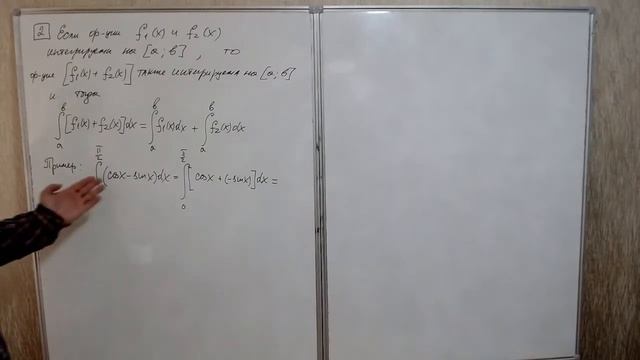 2 Если ф-ции f₁(x) и f₂(x)
интегрируемы на [a; b], то
ф-ция [f₁(x) + f₂(x)] также интегрируема на [a; b]
и тогда
∫ₐᵇ [f₁(x) + f₂(x)]dx = ∫ₐᵇ f₁(x)dx + ∫ₐᵇ f₂(x)dx
Пример: ∫^(π/2) (cosx − sinx)dx = ∫₀^(π/2) [cosx + (−sinx)]dx =